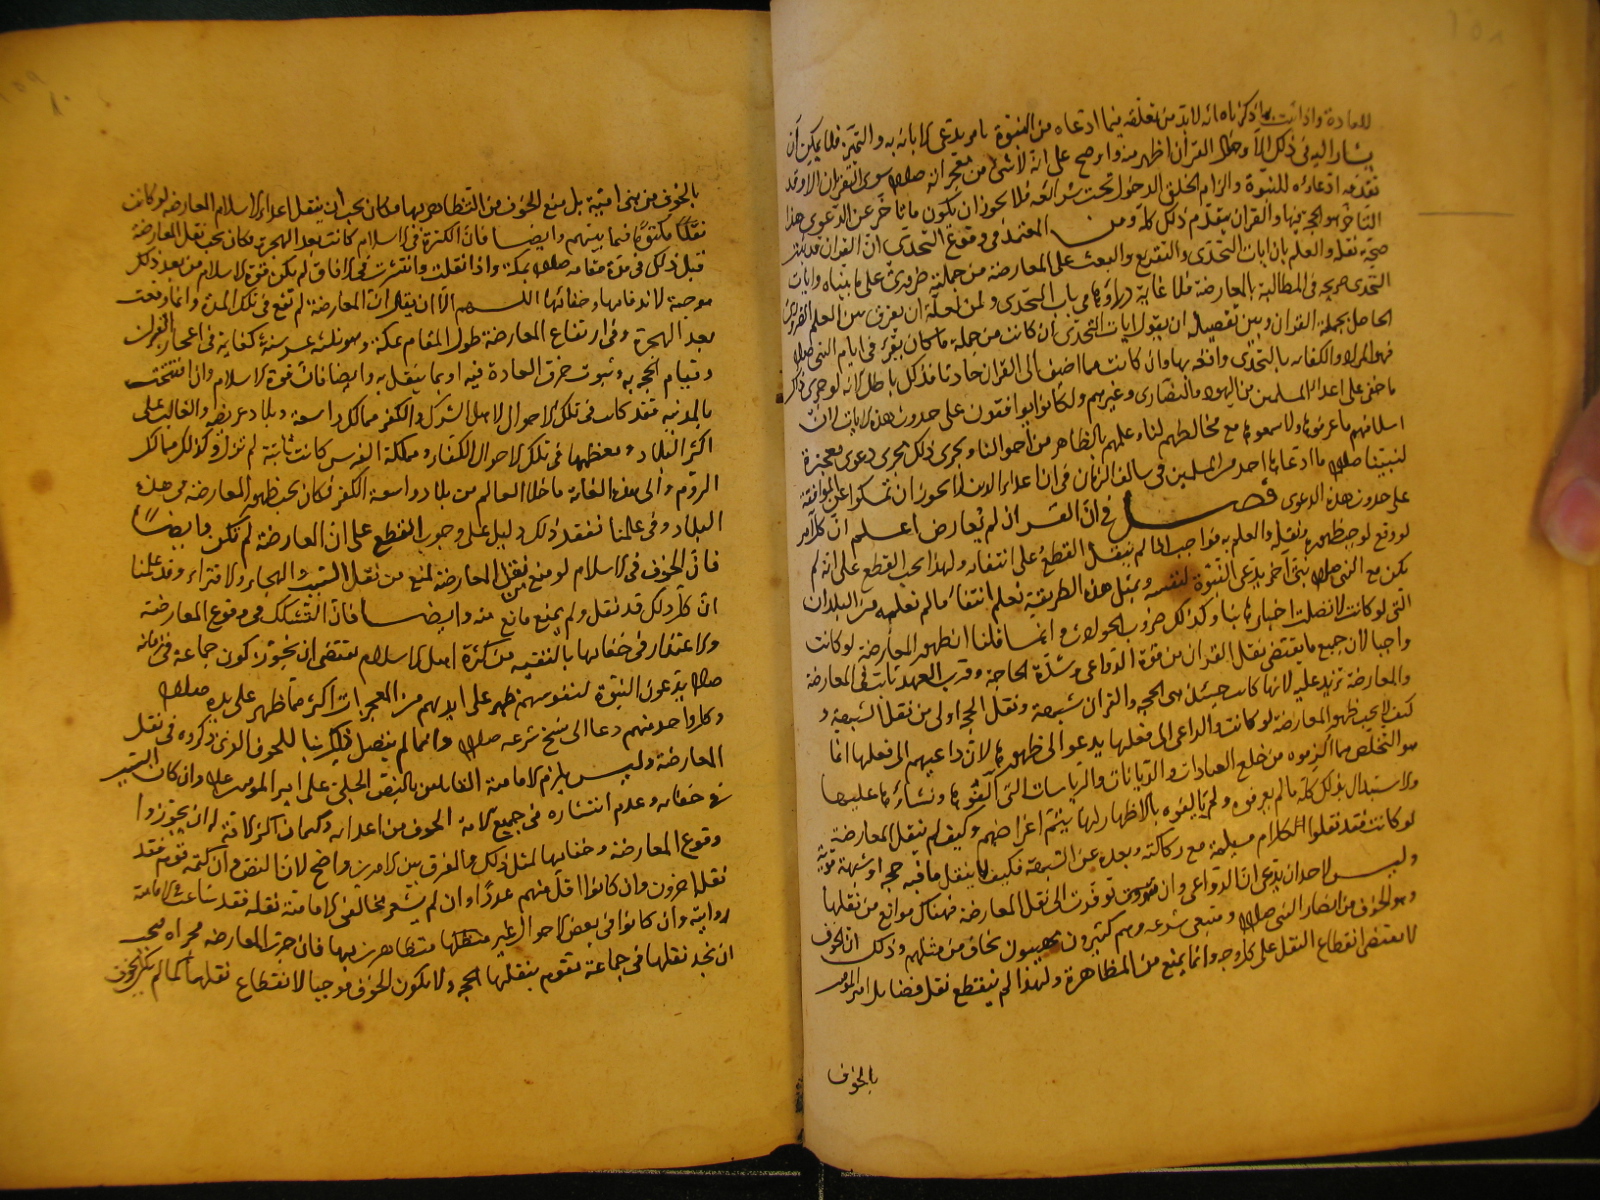 للعادة واذا ثبت بما ذكرناه انه لابد من تعلقه فيما ادعاه من النبوة بامر يدعى الابانة به والتميز فلا يمكن ان
يشار اليه فى ذلك الا وحال القران اظهر منه واوضح على انه لاشئ من معجزاته صلعم سوى القران الا وقد
تقدمه ادعاؤه للنبوة والزام الخلق الدخول تحت شرائعه فلا يجوز ان يكون ما تاخر عن الدعوى هذا
التاخر هو الحجة فيها والقران متقدم ذلك كله ومن المعتمد فى وقوع التحدى ان القران قد ثبت
صحة نقله والعلم بان ايات التحدى والتقريع والبعث على المعارضة من جملته ضرورى على ما بيناه وايات
التحدى صريحة فى المطالبة بالمعارضة فلا غاية وراؤها فى باب التحدى ولمن لعله ان يفرق بين العلم الضرورى
الحاصل بجملة القران وبين تفصيله ان يقول ايات التحدى ان كانت من جملة ما كان يقرء فى ايام النبى صلعم
فهو المراد والكفاية بالتحدى واقعة بها وان كانت مما اضيف الى القران حادثا فذلك باطل لانه لو جرى ذلك
ما خفى على اعداء المسلمين من اليهود والنصارى وغيرهم ولكانوا يوافقون على حدوث هذه الايات وان
اسلافهم ما عرفوها ولا سمعوها مع مخالطهم لنا وعلمهم بالظاهر من احوالنا ويجرى ذلك مجرى دعوى معجزة
لنبينا صلعم ما ادعاها احد من المسلمين فى سالف الزمان فى ان اعداء الدين لا يجوز ان تمسكوا عن الموافقة
على حدوث هذه الدعوى فصل فى ان القران لم يعارض اعلم ان كل امر
لو وقع لوجب ظهوره ونقله والعلم به فواجب اذا لم ينقل القطع على انتفائه ولهذا يجب القطع على انه لم
يكن مع النبى صلعم نبى آخر يدعى النبوة لنفسه وبمثل هذه الطريقة نعلم انتفاء ما لم نعلمه من البلدان
التى لو كانت لاتصلت اخبارها بنا وكذلك ضروب الحوادث وانما قلنا ان ظهور المعارضة لو كانت
واجبا لان جميع ما يقتضى نقل القران من قوة الدواعى وشدة الحاجة وقرب العهد ثابت فى المعارضة
والمعارضة تزيد عليه لانها كانت حينئذ هى الحجة والقران شبهة ونقل الحجة اولى من نقل الشبهة و
كيف لا يجب ظهور المعارضة لو كانت والداعى الى فعلها يدعو الى ظهورها لان داعيهم الى فعلها انما
هو التخلص مما الزموه من خلع العبادات والديانات والرياسات التى ألفوها ونشاؤها عليها
ولاستبدال بذلك كله ما لم يعرفوه ولم يالفوه بالاظهار لها يتم اغراضهم وكيف لم ينقل المعارضة
لو كانت فقد نقلوا كلام مسيلمة مع ركاكته وبعده عن الشبهة فكيف لا ينقل ما فيه حجة او شبهة قوية
وليس لاحد ان يدعى ان الدواعى وان توفرت الى نقل المعارضة فهناك موانع من نقلها
وهو الخوف من انصار النبى صلعم ومتبعى شرعه وهم كثيرون مهيبون يخاف من مثلهم وذلك ان الخوف
لا يقتضى انقطاع النقل على كل وجه وانما يمنع من المظاهرة ولهذا لم ينقطع نقل فضايل امير المومنين
بالخوف
بالخوف من بنى امية بل منع الخوف من التظاهر بها فكان يجب ان ينقل اعداء الاسلام المعارضة لو كانت
نقلا مكتوما فيما بينهم وايضا فان الكثرة فى الاسلام كانت بعد الهجرة فكان يجب نقل المعارضة
قبل ذلك فى مدة مقامه صلعم بمكة واذا نقلت وانتشرت فى الافاق لم يكن قوة الاسلام من بعد ذلك
موجبة لاندفانها وخفائها اللهم الا ان يقال ان المعارضة لم تقع فى تلك المدة وانما وقعت
بعد الهجرة وفى ارتفاع المعارضة طول المقام بمكة وهو ثلثة عشر سنة كفاية فى اعجاز القران
وقيام الحجة به وثبوت خرق العادة فيه او بما يتعلق به وايضا فان قوة الاسلام وان افتتحت
بالمدينة فقد كانت فى تلك الاحوال لاهل الشرك والكفر ممالك واسعة وبلاد عريضة والغالب على
اكثر البلاد ومعظمها فى تلك الاحوال الكفار ومملكة الفرس كانت ثابتة لم تزل وكذلك ممالك
الروم والى هذه الغاية ما خلا العالم من بلاد واسعة الكفر فكان يجب ظهور المعارضة فى هذه
البلاد وفى علمنا تفقد ذلك دليل على وجوب القطع على ان المعارضة لم تكن وايضا
فان الخوف فى الاسلام لو منع من نقل المعارضة لمنع من نقل السب والهجاء والافتراء وقد علمنا
ان كل ذلك قد نقل ولم يمنع مانع منه وايضا فان التشكك فى وقوع المعارضة
والاعتذار فى خفائها بالتقية من كثرة اهل الاسلام يقتضى ان يجوز كون جماعة فى زمانه
صلعم يدعون النبوة لنفوسهم ظهر على ايديهم من المعجزات اكثر مما ظهر على يده صلعم
وكل واحد منهم دعا الى نسخ شرعه صلعم وانما لم يتصل ذلك بنا للخوف الذى ذكروه فى نقل
المعارضة وليس يلزم الامامية القائلين بالنص الجلى على امير المومنين علم وان كان السبب
فى خفائه وعدم انتشاره فى جميع الامة الخوف من اعدائه وكتمان اكثر الامة له ان يجوزوا
وقوع المعارضة وخفائها لمثل ذلك والفرق بين الامرين واضح لان النص وان كتمه قوم فقد
نقله اخرون وان كانوا اقل منهم عددا وان لم يشعر مخالفى الامامية نقله فقد شاعت فى الامامية
روايته وان كانوا فى بعض الاحوال غير متظاهرين بها فان جرت المعارضة مجراه فيجب
ان نجد نقلها فى جماعة تقوم بنقلها الحجة ولا يكون الخوف موجبا لانقطاع نقلها كما لم يكن الخوف